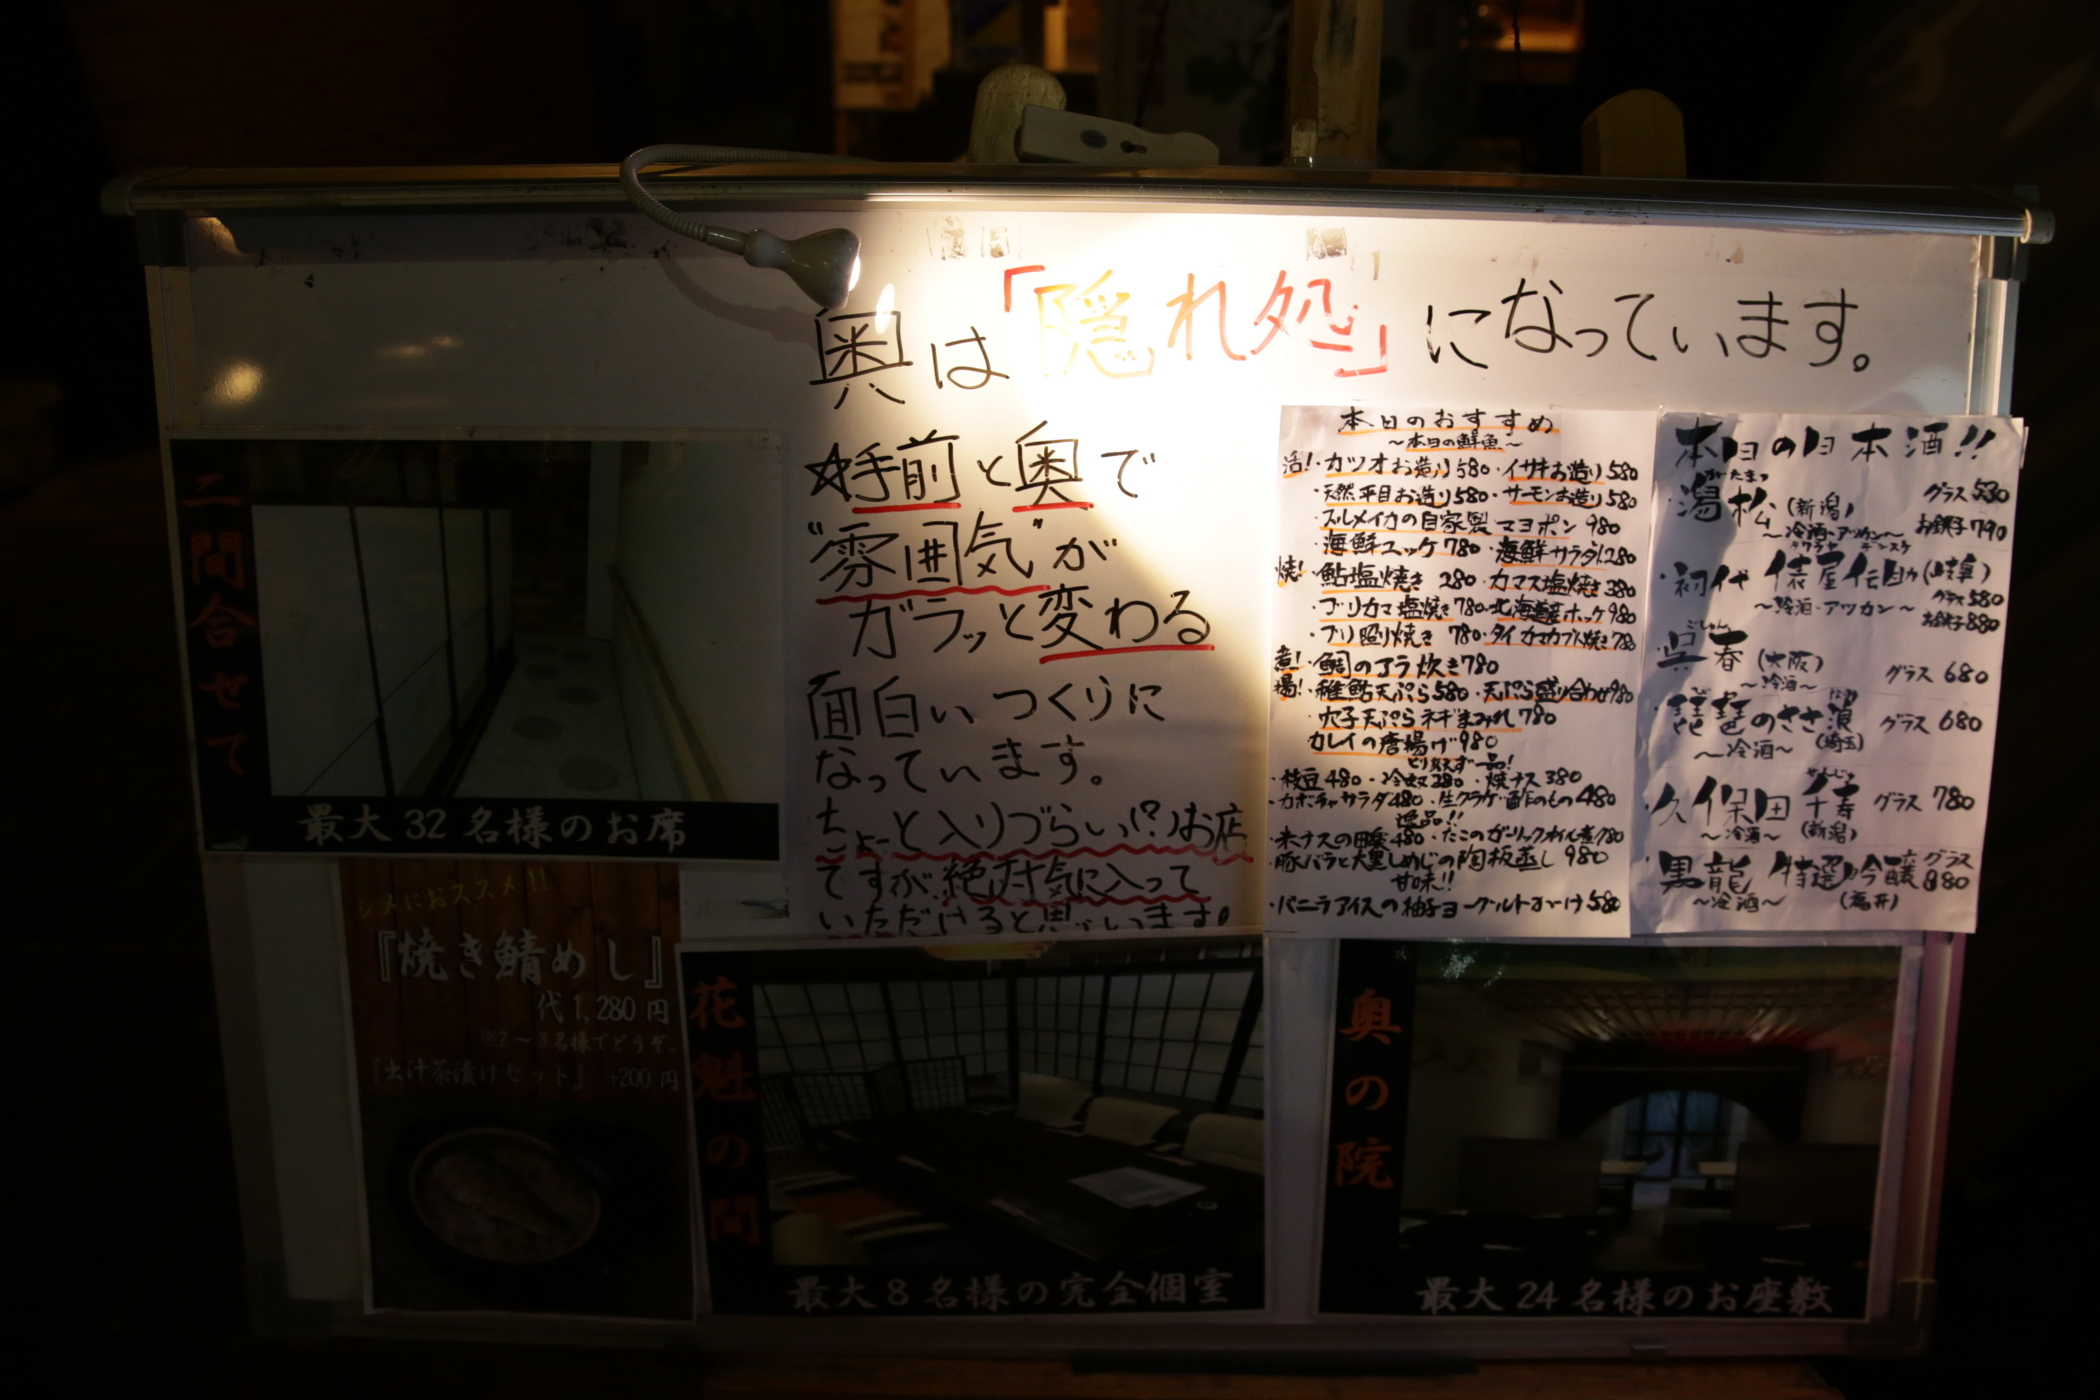 奥は「隠れ処」になっています。
☆手前と奥で
"雰囲気"が
ガラッと変わる
面白いつくりに
なっています。
ちょーと入りづらい(?)お店
ですが、絶対気に入って
いただけると思います。
二間合せて
最大32名様のお席
シメにおススメ!!
『焼き鯖めし』
代1,280円
※2～3名様でどうぞ。
『出汁茶漬けセット』 +200円
花魁の間
最大8名様の完全個室
奥の院
最大24名様のお座敷
本日のおすすめ
～本日の鮮魚～
活!・カツオお造り580・イサキお造り580
・天然平目お造り580・サーモンお造り580
・スルメイカの自家製マヨポン 980
・海鮮ユッケ780・海鮮サラダ1280
焼!・鮎塩焼き 280・カマス塩焼き380
・ブリカマ塩焼き780・北海道産ホッケ980
・ブリ照り焼き 780・タイカマカブト焼き780
煮!・鯛のアラ炊き780
揚!・稚鮎天ぷら580・天ぷら盛り合わせ980
・穴子天ぷらネギまみれ780
カレイの唐揚げ980
とりあえず一品!
・枝豆480・冷奴380・焼ナス380
・カボチャサラダ480・生クラゲ酢のもの480
逸品!!
・米ナスの田楽480・たこのガーリックオイル煮780
・豚バラと大黒しめじの陶板蒸し 980
甘味!!
・バニラアイスの柚子ヨーグルトがけ580
本日の日本酒!!
がたまつ
・潟松(新潟) グラス530
～冷酒・アツカン～ お銚子790
タワラヤ デンスケ
・初代 俵屋伝助(岐阜)
～冷酒・アツカン～ グラス580
お銚子880
ごしゅん
・呉春(大阪) グラス680
～冷酒～
・琵琶のささ浪 グラス680
～冷酒～ (埼玉)
せんじゅ
・久保田 千寿 グラス780
～冷酒～ (新潟)
・黒龍 特選吟醸 グラス880
～冷酒～ (福井)